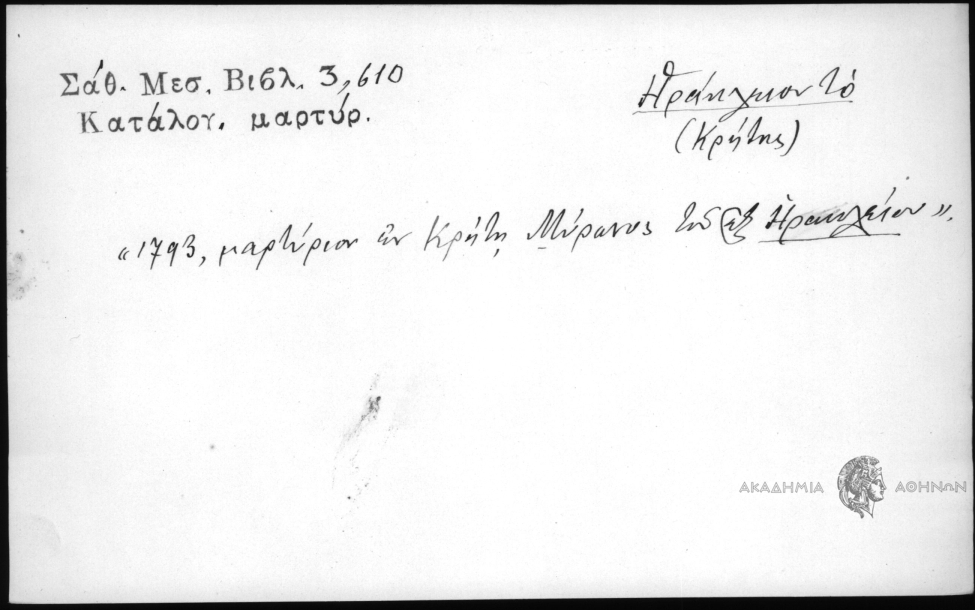 Σάθ. Μεσ. Βιβλ. 3, 610
Κατάλογ. μαρτύρ.
Ἡράκλειον τὸ
(Κρήτης)
«1793, μαρτύριον ἐν Κρήτῃ Μύρωνος τοῦ ἐξ Ἡρακλείου».
ΑΚΑΔΗΜΙΑ ΑΘΗΝΩΝ